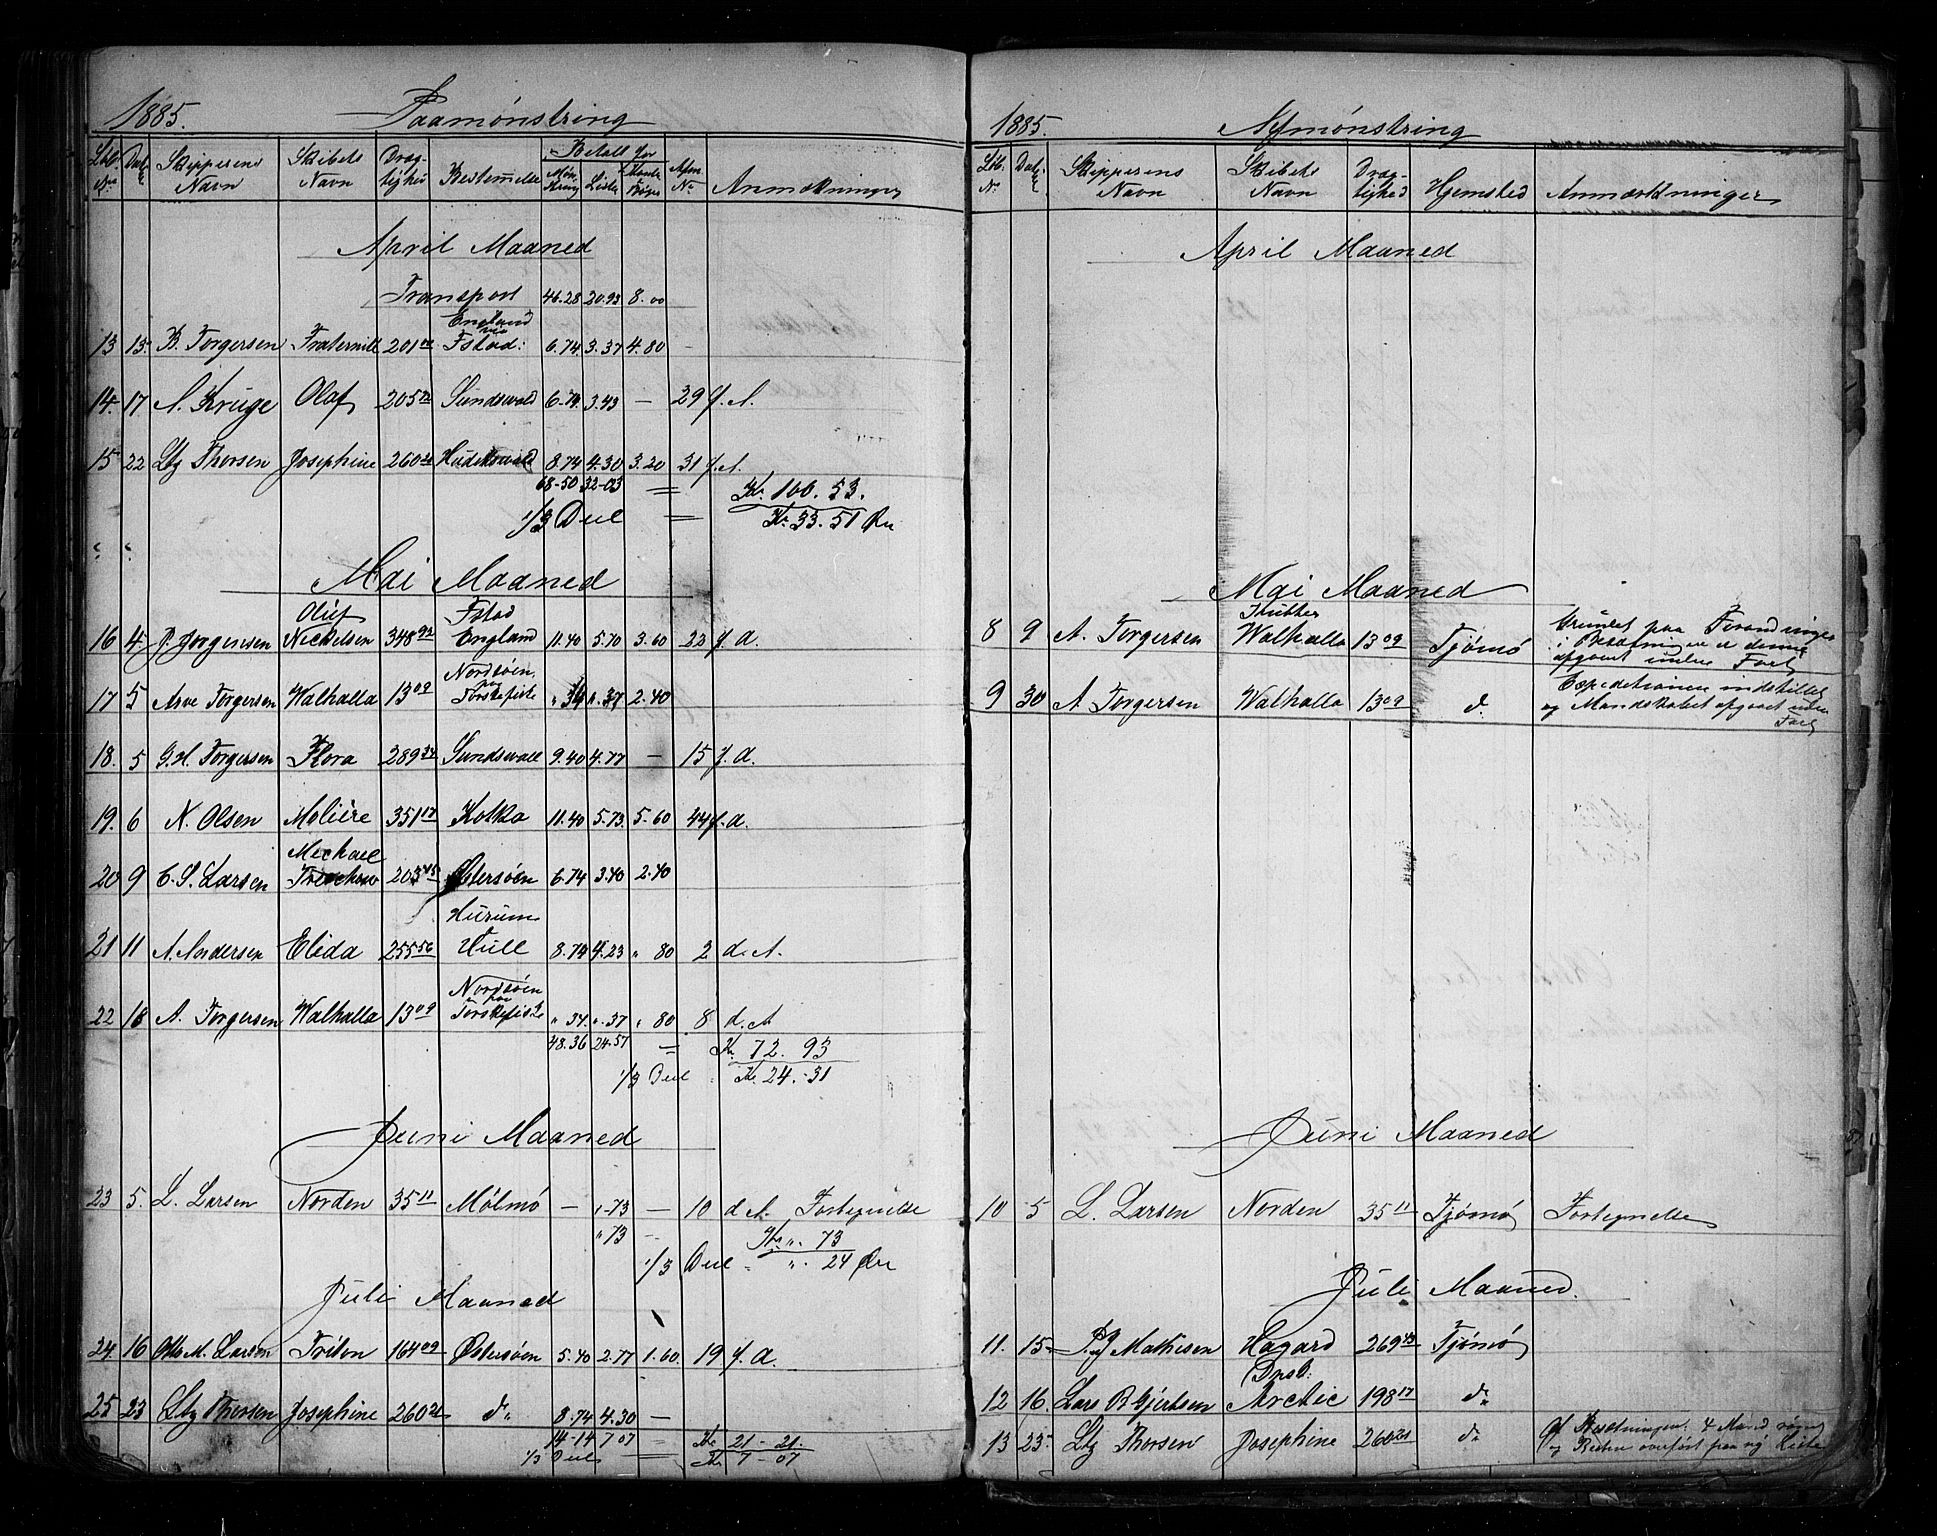 1885. Paamønstring
Løb. No. Dat. Skipperens Navn Skibets Navn Dræg-tighed Bestemmelse Betalt for Møn-string Lister No. Anmærkninger
April Maaned
Transport 46.28 20.93 8.00
England
13 13. B. Torgersen Fraternité 201 Fstad: 6.74 3.37 4.80 -
14. 17 A. Kruge Olaf 205 72 Sundswald 6.74 3.43 — 29 f. A.
15 22 Ltz Thorsen Josephine 260 20 Hudikswald 8.74 4.30 3.20 31 f. A.
68-50 32-03 = Kr. 100. 53.
1/3 Deel = Kr. 33. 51 Øre
Mai Maaned
Oluf Fstad
16 4. J. Jørgensen Nickelsen 348 92 England 11.40 5.70 3.60 23 f. a.
Nordsøen
17 5 Arve Torgersen Walhalla 13 09 paa Torskefiske " 34 ". 37 2.40
18. 5 G. H. Torgersen Flora 289 34 Sundswall 9.40 4.77 — 15 f. a.
19. 6 N. Olsen Moliere 351 17 Kotka 11.40 5.73. 5.60 44 f. a.
Michael
20 9 C. S. Larsen Treschow 203 45 Østersøen 6.74 3.40 2.40
Hurum
21 11 A. Andersen Elida 255 56 Hull 8.74 4.23 " 80 2 d. A.
Nordsøen
22 18 A. Torgersen Walhalla 13 09 paa Torskefiske " 34. ". 37 " 80 8 d. A
48.36 24.57 = Kr. 72. 93
1/3 Deel Kr. 24. -31
Juni Maaned
23 5. L. Larsen Norden 35 11 Mölmö — "-73 — 10 d A. Fortegnelse
" 73 — Kr ". 73
1/3 Deel " ". 24 Øre
Juli Maaned
24. 16 Otto M. Larsen Triton 164 09 Østersøen 5.40 2.77 1.60. 19 f. a.
25 23 Ltz Thorsen Josephine 260 20 do 8.74 4.30 —
14-14 7 07 = Kr 21 - 21.
1/3 Deel = Kr 7 - 07
1885. Afmønstring
Løb. No. Dat. Skipperens Navn Skibets Navn Dræg-tighed Hjemsted Anmærkninger
April Maaned
Mai Maaned
Kutter
8 9 A. Torgersen Walhalla 13 09 Tjømø paa Forandringer
i Besætningen er denne
afgaaet uden Fart
9 30 A Torgersen Walhalla 13 09 do Expeditionen indstillet
og Mandskabet afgaaet uden
Fart
Juni Maaned
10 5 L. Larsen Norden 35 11 Tjømø Fortegnelse
Juli Maaned.
11. 15 Mathisen Hagard 269 43 Tjømø
12 16. Lars B Gjertsen Arctic 198 17 do
13 23 Ltz Thorsen Josephine 260 20 do Af Besætningen 4 Mand
og Resten overført paa ny Liste